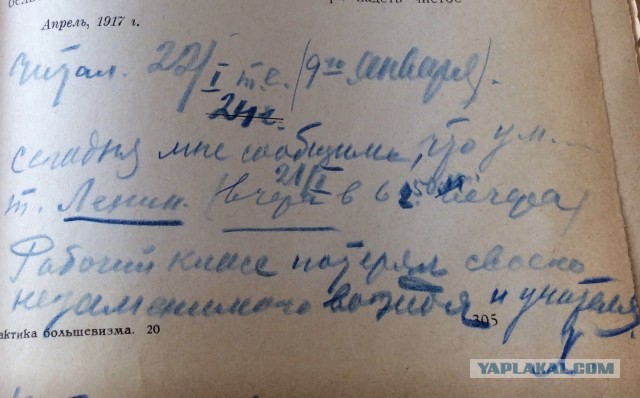 надеть чистое
Апрель, 1917 г.
Читал. 22/I т.е. (9го января).
24 г.
Сегодня мне сообщили, что ум.
21/I
т. Ленин. (вчера в 6 50 м вечера)
Рабочий класс потерял своего
незаменимого вождя и учителя
актика большевизма. 20 305
YAPLAKAL.COM